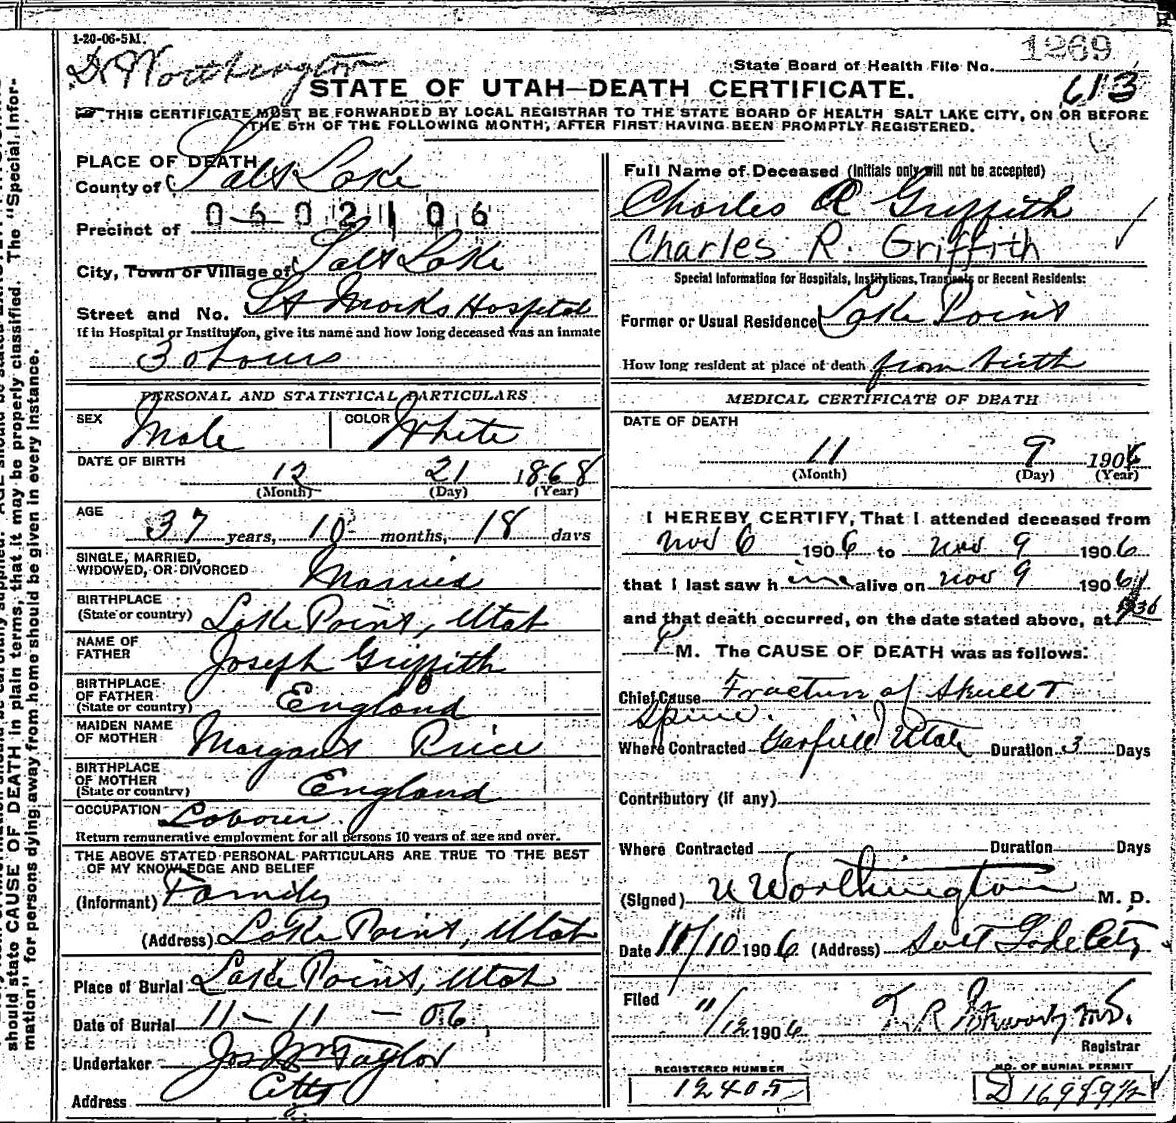 1-20-06-5M.
Dr Worthington
1269
State Board of Health File No.
613
STATE OF UTAH—DEATH CERTIFICATE.
THIS CERTIFICATE MUST BE FORWARDED BY LOCAL REGISTRAR TO THE STATE BOARD OF HEALTH SALT LAKE CITY, ON OR BEFORE
THE 5TH OF THE FOLLOWING MONTH, AFTER FIRST HAVING BEEN PROMPTLY REGISTERED.
PLACE OF DEATH
County of Salt Lake
0602106
Precinct of
City, Town or Village of Salt Lake
Street and No. St Marks Hospital
If in Hospital or Institution, give its name and how long deceased was an inmate
PERSONAL AND STATISTICAL PARTICULARS
SEX Male COLOR White
DATE OF BIRTH
12 21 1868
(Month) (Day) (Year)
AGE
37 years, 10 months, 18 days
SINGLE, MARRIED,
WIDOWED, OR DIVORCED Married
BIRTHPLACE
(State or country) Lake Point, Utah
NAME OF
FATHER Joseph Griffith
BIRTHPLACE
OF FATHER
(State or country) England
MAIDEN NAME
OF MOTHER Margaret Price
BIRTHPLACE
OF MOTHER
(State or country) England
OCCUPATION Laborer
Return remunerative employment for all persons 10 years of age and over.
THE ABOVE STATED PERSONAL PARTICULARS ARE TRUE TO THE BEST
OF MY KNOWLEDGE AND BELIEF
(Informant) Family
(Address) Lake Point, Utah
Place of Burial Lake Point, Utah
Date of Burial 11 — 11 — 06
Undertaker Jos Wm Taylor
Address City
Full Name of Deceased (Initials only will not be accepted)
Charles R Griffith
Charles R. Griffith
Special Information for Hospitals, Institutions, Transients or Recent Residents:
Former or Usual Residence Lake Point
How long resident at place of death from birth
MEDICAL CERTIFICATE OF DEATH
DATE OF DEATH
11 9 1906
(Month) (Day) (Year)
I HEREBY CERTIFY, That I attended deceased from
Nov 6 1906 to Nov 9 1906
that I last saw him alive on Nov 9 1906
and that death occurred, on the date stated above, at
P M. The CAUSE OF DEATH was as follows:
Chief Cause Fracture of Skull +
Spine.
Where Contracted Garfield Utah Duration 3 Days
Contributory (if any)
Where Contracted Duration Days
(Signed) Worthington M. D.
Date 11/10 1906 (Address) Salt Lake City
Filed
11/12 1906 M.D.
Registrar
REGISTERED NUMBER
12405
NO. OF BURIAL PERMIT
D 16989 1/2
should state CAUSE OF DEATH in plain terms, that it may be properly classified. The "Special Infor-
mation" for persons dying away from home should be given in every instance.